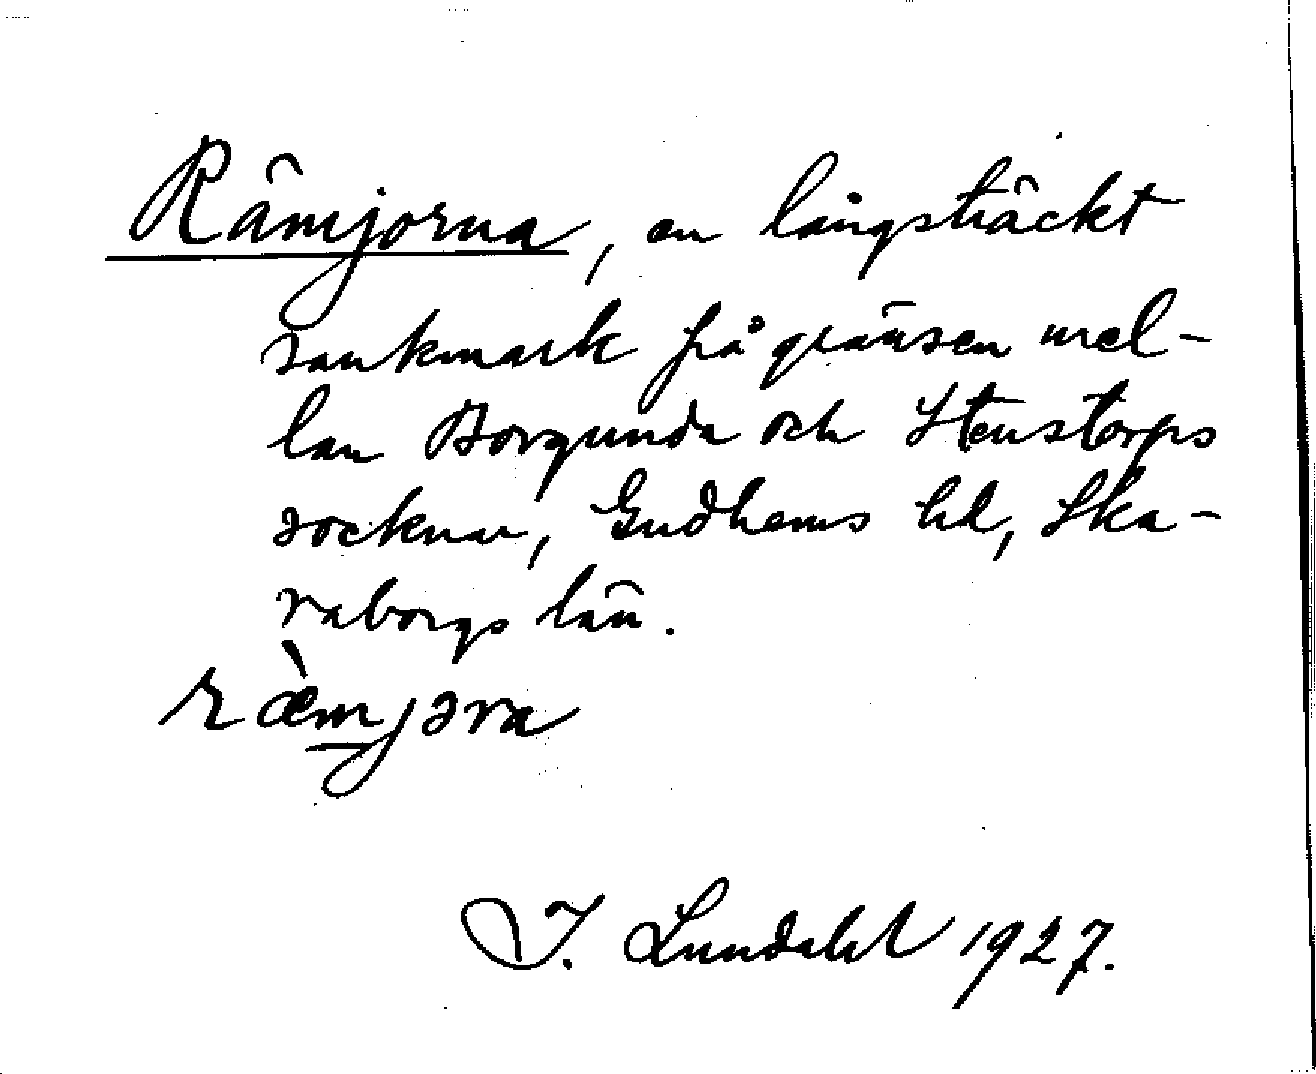 Rämjorna, en långsträckt
sankmark på gränsen mel-
lan Borgunda och Stenstorps
socknar, Gudhems hd, Ska-
raborgs län.
ræ̀mjəra
I. Lundahl 1927.